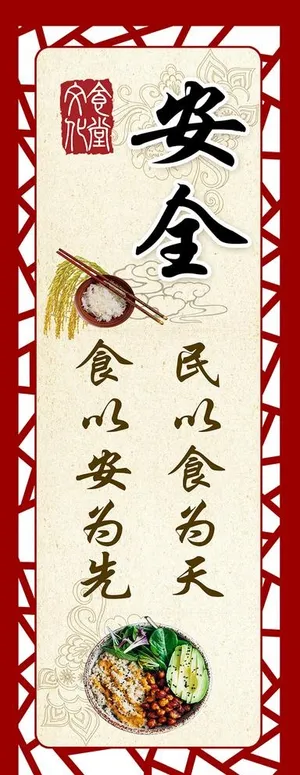 食堂
文化
安全
民以食为天
食以安为先